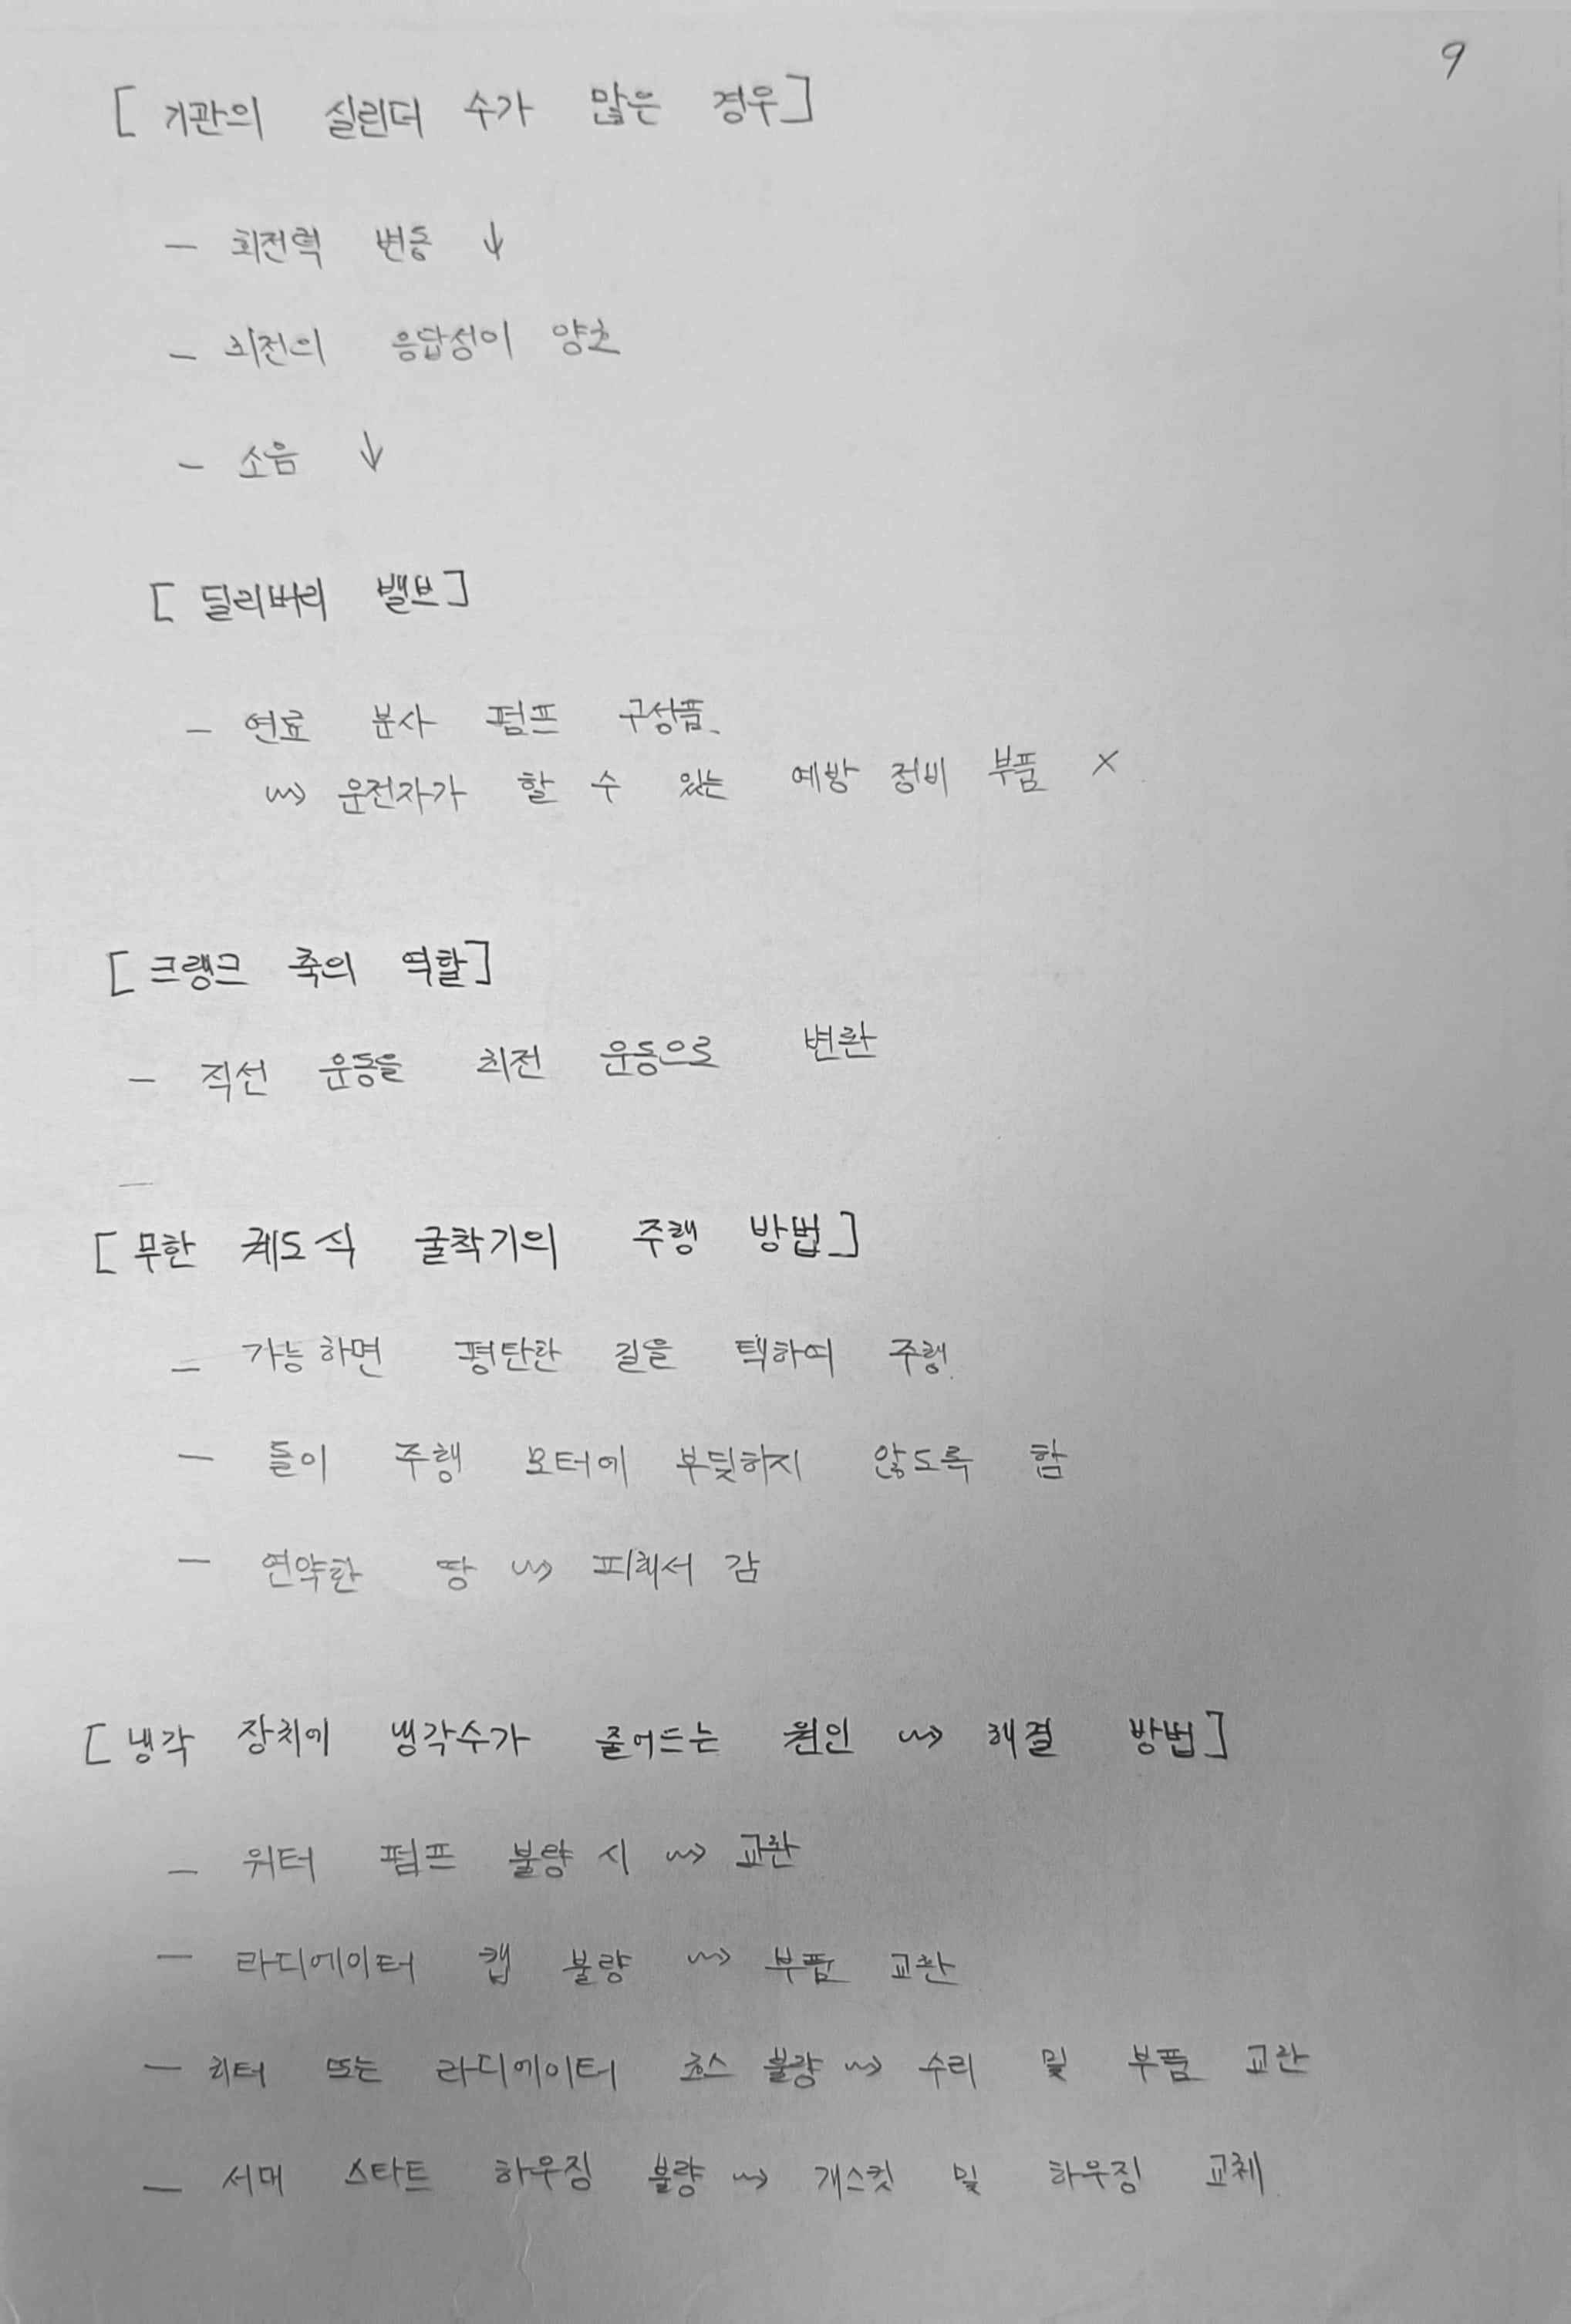 9
[ 기관의 실린더 수가 많은 경우 ]
- 회전력 변동 ↓
- 회전의 응답성이 양호
- 소음 ↓
[ 딜리버리 밸브 ]
- 연료 분사 펌프 구성품.
↝ 운전자가 할 수 있는 예방 정비 부품 ×
[ 크랭크 축의 역할 ]
- 직선 운동을 회전 운동으로 변환
[ 무한 궤도식 굴착기의 주행 방법 ]
- 가능하면 평탄한 길을 택하여 주행.
- 돌이 주행 모터에 부딪히지 않도록 함
- 연약한 땅 ↝ 피해서 감
[ 냉각 장치에 냉각수가 줄어드는 원인 ↝ 해결 방법 ]
- 워터 펌프 불량 시 ↝ 교환
- 라디에이터 캡 불량 ↝ 부품 교환
- 히터 또는 라디에이터 호스 불량 ↝ 수리 및 부품 교환
- 서머 스타트 하우징 불량 ↝ 개스킷 및 하우징 교체